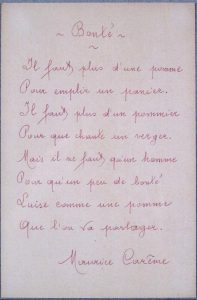 ~ Bonté ~
~
Il faut plus d'une pomme
Pour emplir un panier.
Il faut plus d'un pommier
Pour que chante un verger.
Mais il ne faut qu'un homme
Pour qu'un peu de bonté
Luise comme une pomme
Que l'on va partager.
Maurice Carême